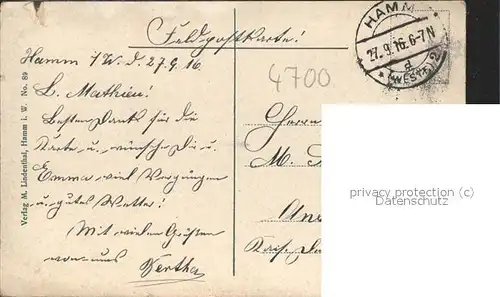 Feldpostkarte!
HAMM
27.9.16.6-7N
d
(WESTF.) 2
Hamm i/W. d. 27.9.16
4700
L. Mathieu!
Besten Dank für die
Karte u. wünsche Dir u.
Emma viel Vergnügen
u. gutes Wetter!
Mit vielen Grüßen
von uns
Bertha
Herrn
M.
privacy protection (c)
Datenschutz
Verlag M. Lindenthal, Hamm i. W. No. 89